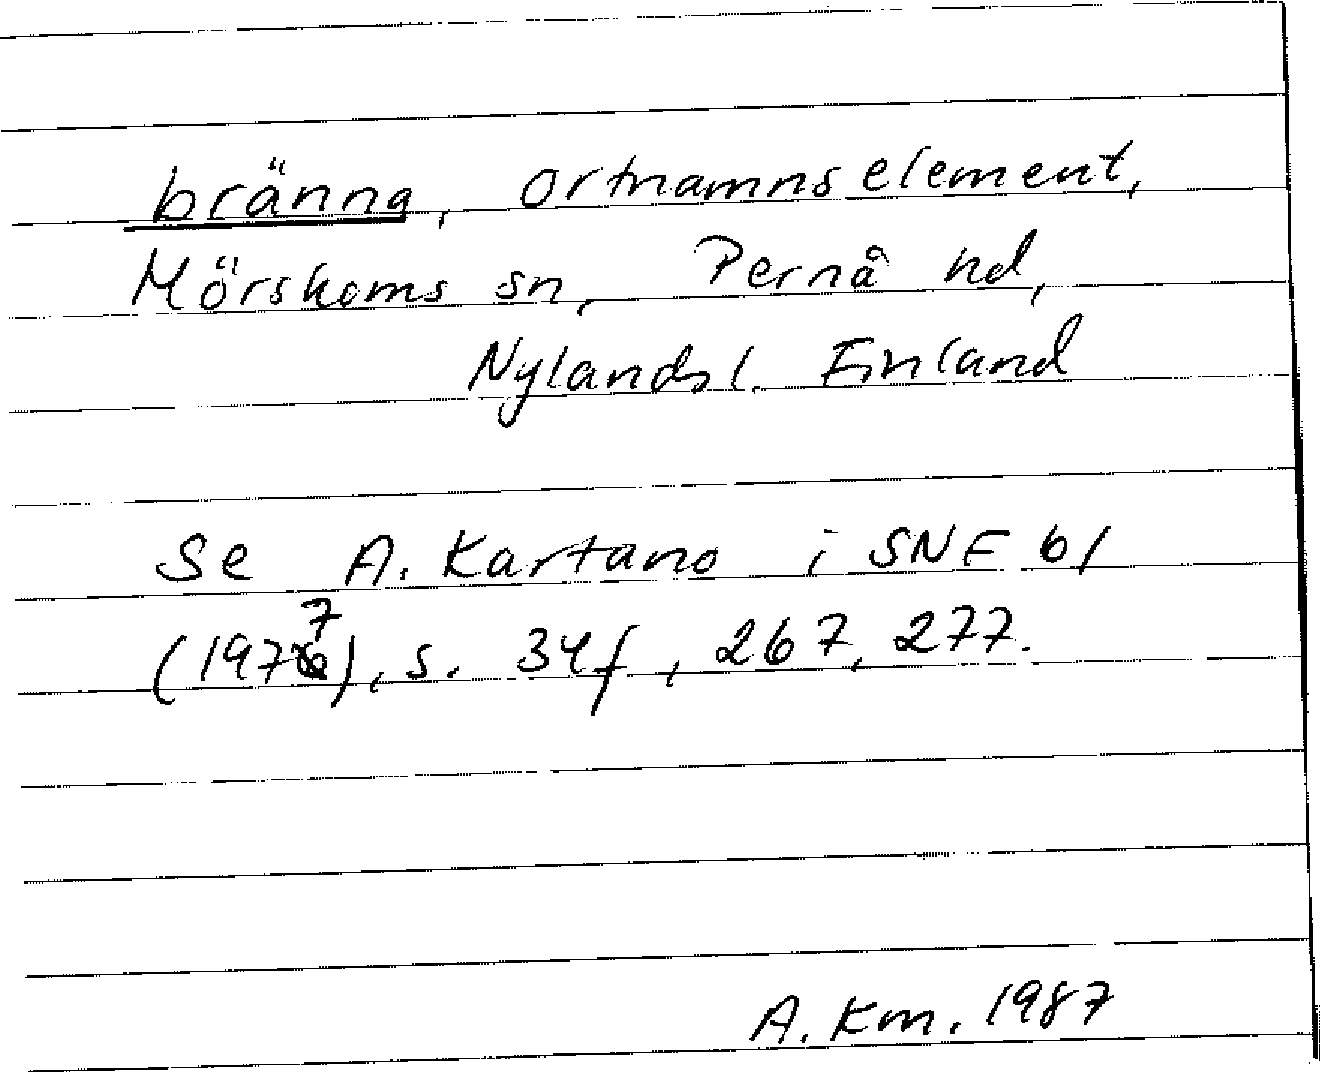 bränna, ortnamnselement,
Mörskoms sn, Pernå hd,
Nylands l. Finland
Se A. Kartano i SNF 61
(1977), s. 34f, 267, 277.
A. Km. 1987